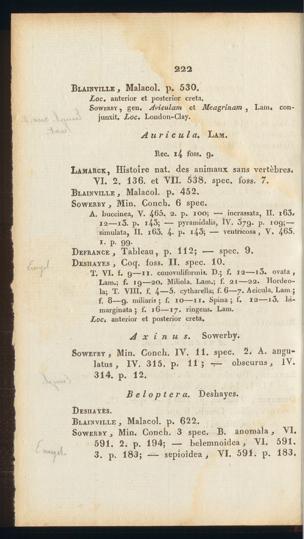 222
BLAINVILLE, Malacol. p. 530.
Loc. anterior et posterior creta.
SOWERBY, gen. Aviculam et Meagrinam, Lam. con-
junxit. Loc. London-Clay.
Auricula. LAM.
Rec. 14 foss. 9.
LAMARCK, Histoire nat. des animaux sans vertèbres.
VI. 2. 136. et VII. 538. spec. foss. 7.
BLAINVILLE, Malacol. p. 452.
SOWERBY, Min. Conch. 6 spec.
A. buccinea, V. 465. 2. p. 100; — incrassata, II. 163.
12—13. p. 143; — pyramidalis, IV. 379. p. 109; —
simulata, II. 163. 4. p. 143; — ventricosa, V. 465.
1. p. 99.
DEFRANCE, Tableau, p. 112; — spec. 9.
DESHAYES, Coq. foss. II. spec. 10.
T. VI. f. 9—11. conovuliformis. D.; f. 12—13. ovata,
Lam.; f. 19—20. Miliola. Lam.; f. 21—22. Hordeo-
la; T. VIII. f. 4—5. cytharella; f. 6—7. Acicula. Lam;
f. 8—9. miliaris; f. 10—11. Spina; f. 12—13. bi-
marginata; f. 16—17. ringens. Lam.
Loc. anterior et posterior creta.
Axinus. Sowerby.
SOWERBY, Min. Conch. IV. 11. spec. 2. A. angu-
latus, IV. 315. p. 11; — obscurus, IV.
314. p. 12.
Beloptera. Deshayes.
DESHAYES.
BLAINVILLE, Malacol. p. 622.
SOWERBY, Min. Conch. 3 spec. B. anomala, VI.
591. 2. p. 194; — belemnoidea, VI. 591.
3. p. 183; — sepioidea, VI. 591. p. 183.